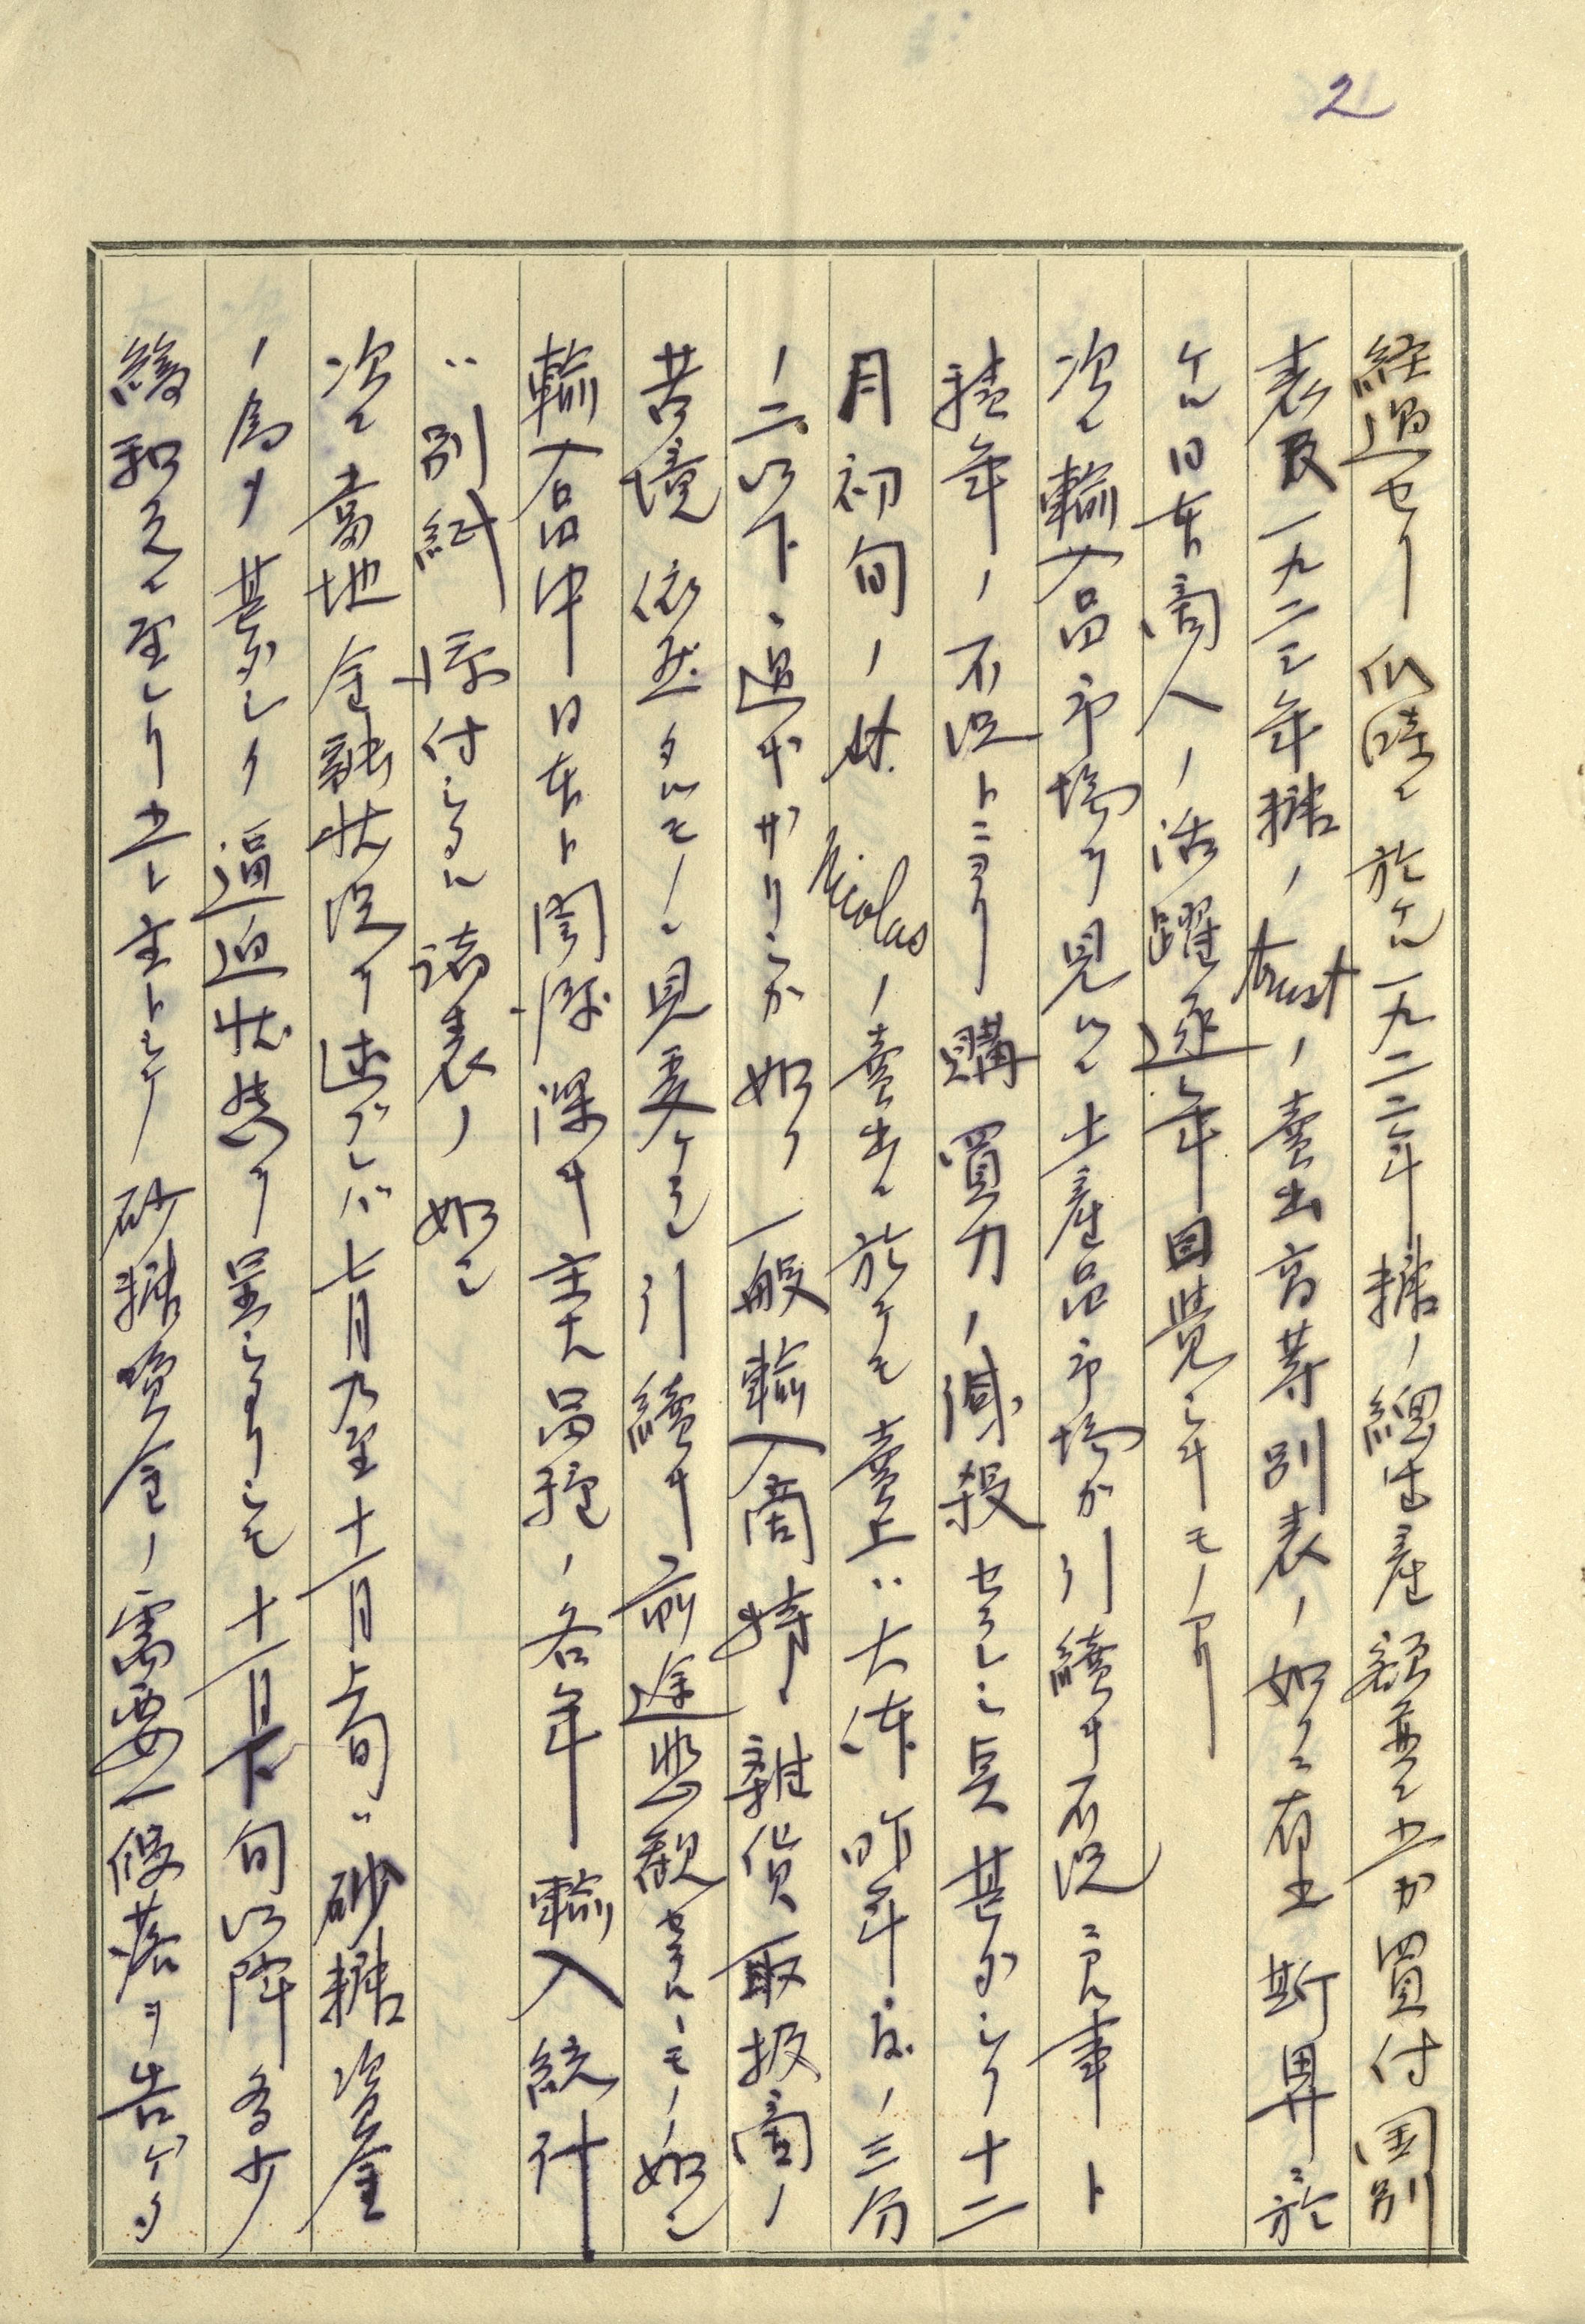 2
経過セリ爪哇ニ於ケル一九二二年糖ノ總生産額並ニ之カ買付国別
表及一九二三年糖ノtrustノ賣出高等別表ノ如クニ有之斯界ニ於
ケル日本商人ノ活躍逐年目覚シキモノアリ
次ニ輸入品市場ヲ見ルニ土産品市場カ引續キ不況ニ良事ト
穐年ノ不況トニヨリ購買力ノ減殺セラレシ点甚ダシク十二
月初旬ノSt. Nicolasノ賣出ニ於テモ賣上ハ大体昨年度ノ三分
ノ二以下ニ過ギザリシカ如ク一般輸入商特ニ雑貨取扱商ノ
苦境依然タルモノト見受ケラレ引續キ前途悲観セラルルモノノ如シ
輸入品中日本ト関係深キ主ナル品種ノ各年輸入統計
ハ別紙添付シタル諸表ノ如シ
次ニ當地金融状況ヲ述ブレバ七月乃至十一月上旬ハ砂糖資金
ノ為メ甚ダシク逼迫状態ヲ呈シタリシモ十一月下旬以降多少
緩和スルニ至レリ之レ主トシテ砂糖資金ノ需要一段落ヲ告ゲタ